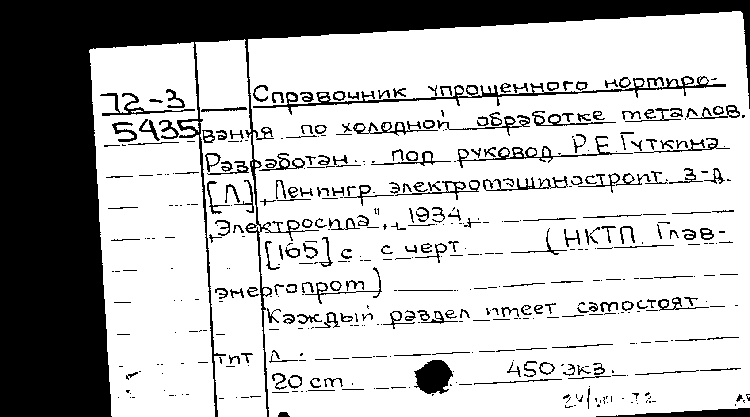 72-3
Справочник упрощенного нормиро-
5435
вания по холодной обработке металлов.
Разработан под руковод. Р.Е. Гуткина
[Л], Ленингр. электромашиностроит. з-д
„Электросила", 1934.
[165] с. с черт. (НКТП. Глав-
энергопром)
Каждый раздел имеет самостоят.
тит. л.
20 см. 450 экз.
24/VII-72